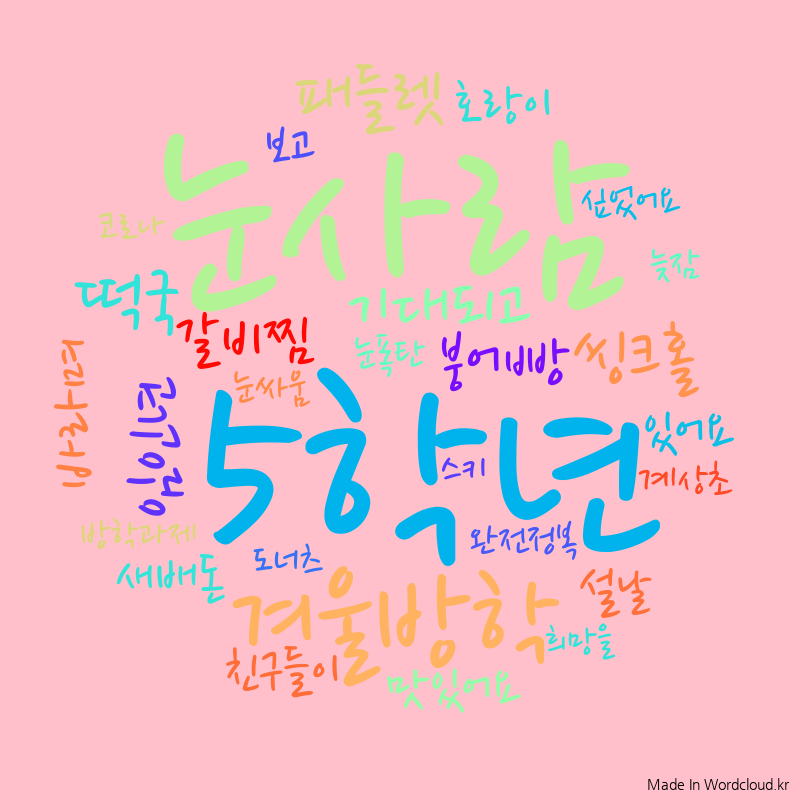 패들렛
호랑이
보고
눈사람
싶었어요
코로나
늦잠
떡국
기대되고
갈비찜
눈폭탄
붕어빵
씽크홀
바라며
눈싸움
임인년
5학년
있어요
스키
계상초
방학과제
완전정복
새배돈
도너츠
겨울방학
설날
희망을
친구들이
맛있어요
Made In Wordcloud.kr